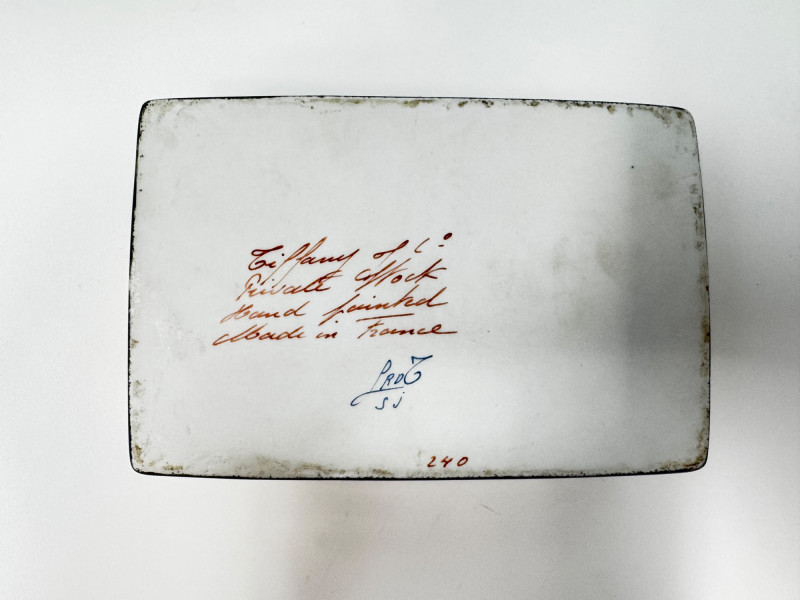 Tiffany & Cº
Private Stock
Hand painted
Made in France
sj
240